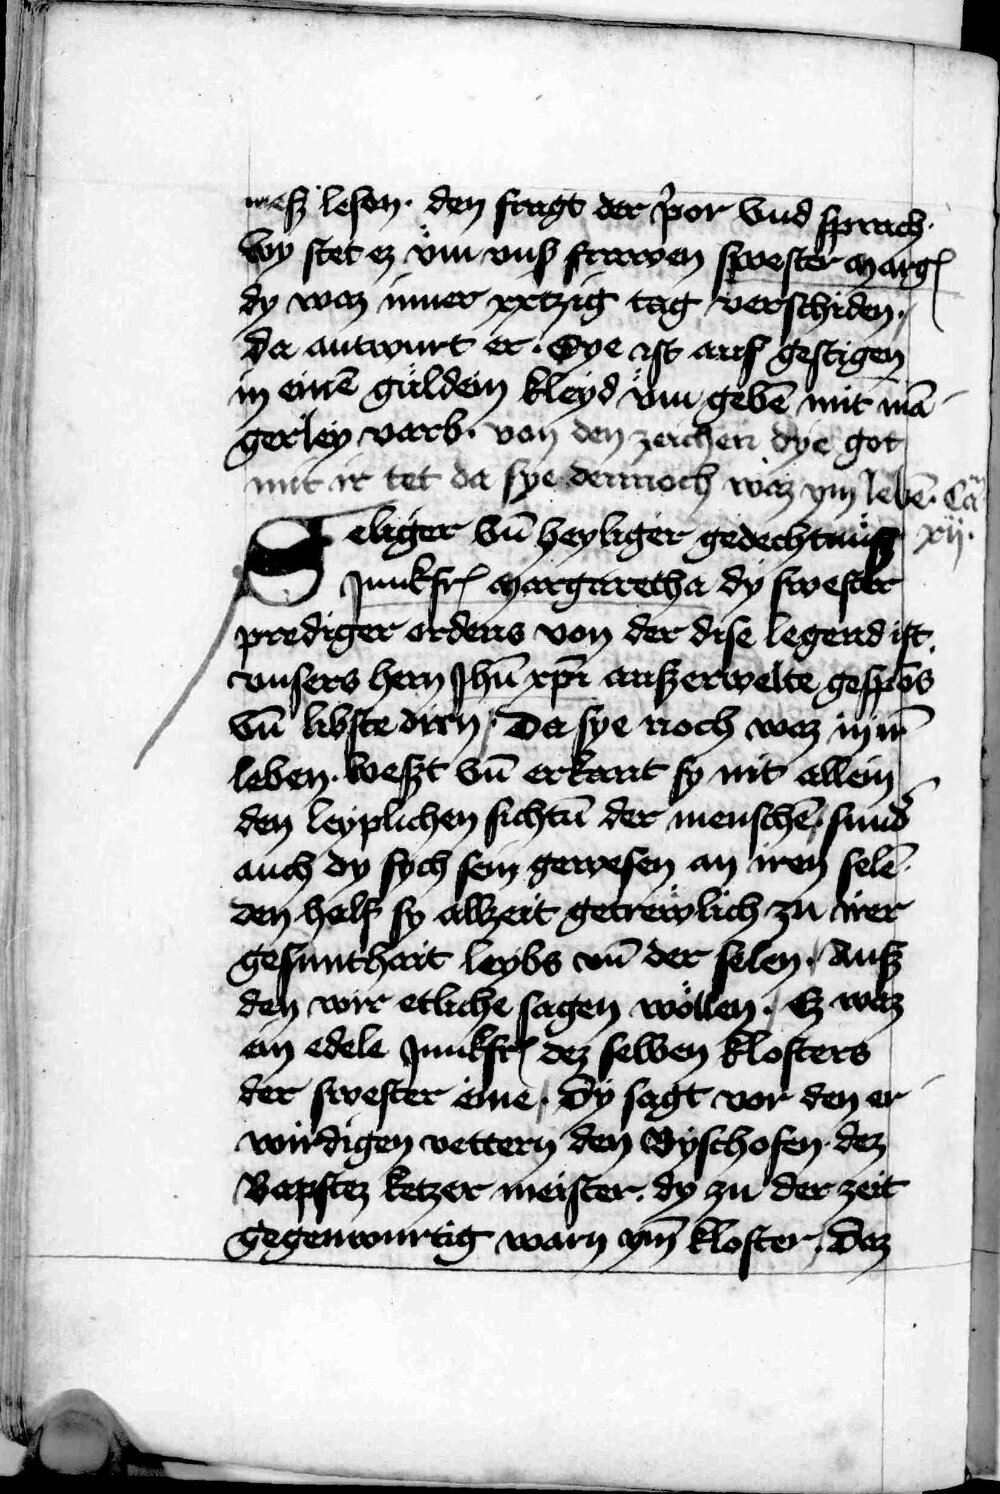 meß lesen · den fragt der p̓or vnd sprach ·
wy stet ez vm vnß frawen swester Marg
dy waz inner xxtzig tag verschiden ·
da antwurt er · Sye ist auf gestigen
in einē guldein kleyd vm gebē mit mā
gerley varb · von den zeichen dye got
mit ir tet da sye dennoch waz ym lebē · Ca
xij ·
Seliger vn̄ heyliger gedechtnuß
Junkfr Margaretha dy swester
prediger ordens von der dise legend ist ·
vnsers hern Jhū xp̄i außerwelte gespos
vn̄ libste dirn / Da sye noch waz in ir̄
leben · weßt vn̄ erkant sy nit allein
den leyplichen sichtū der menschē / sund̓
auch dy sych sein gewesen an iren selē ·
den half sy allzeit getrewlich zu irer
gesunthait leybs vn̄ der selen · / Auß
den wir etliche sagen wöllen · Ez waz
ein edele Junkfr dez selben klosters
der swester eine / Dy sagt vor den er
wirdigen vettern den Byschofen · dez
Bapstez ketzer meister · dy zu der zeit
gegenwurtig warn ym̄ kloster / Daz